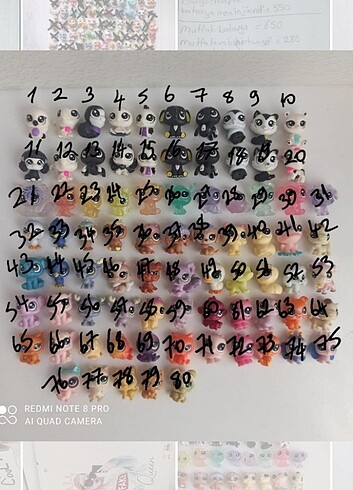 = 650
1 2 3 4 5 6 7 8 9 10
11 12 13 14 15 16 17 18 19 20
21 22 23 24 25 26 27 28 29 30 31
32 33 34 35 36 37 38 39 40 41 42
43 44 45 46 47 48 49 50 51 52 53
54 55 56 57 58 59 60 61 62 63 64
65 66 67 68 69 70 71 72 73 74 75
76 77 78 79 80
REDMI NOTE 8 PRO
AI QUAD CAMERA
Queen